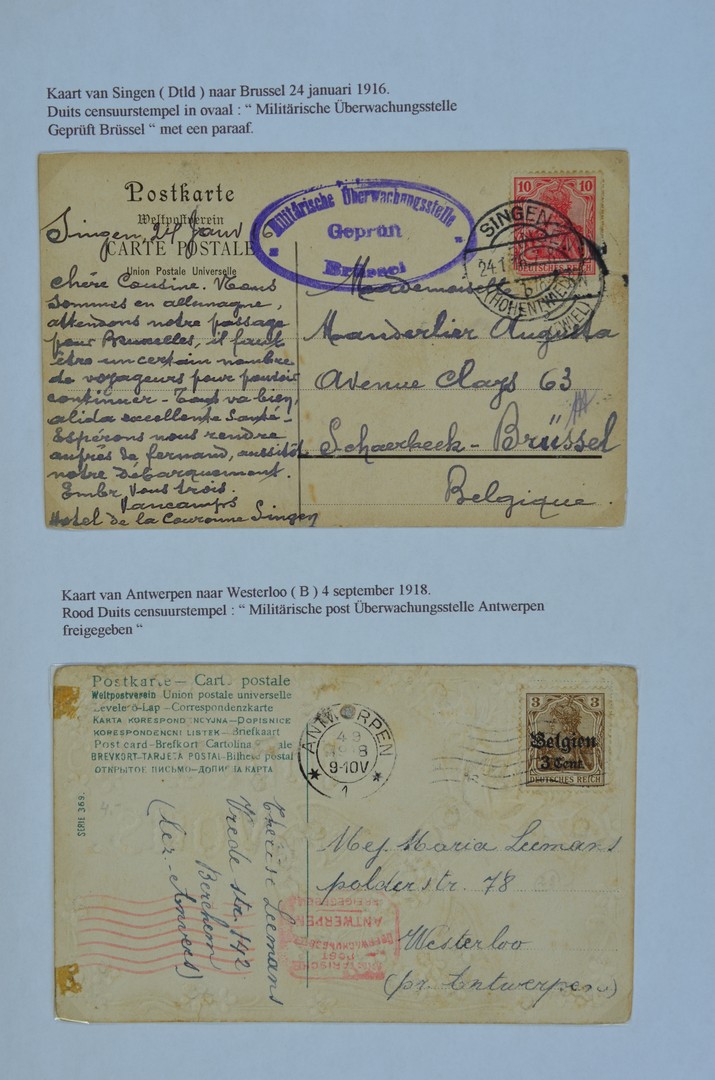 Kaart van Singen ( Dtld ) naar Brussel 24 januari 1916.
Duits censuurstempel in ovaal : “ Militärische Überwachungsstelle
Geprüft Brüssel “ met een paraaf.
Postkarte
Weltpostverein
CARTE POSTALE
Union Postale Universelle
Singen, 24 Janv 16
Chère Cousine. Nous
sommes en allemagne,
attendons notre passage
pour Bruxelles, il faut
être un certain nombre
de voyageurs pour pouvoir
continuer - Tout va bien,
alida excellente santé -
Espérons nous rendre
auprès de fernand, aussitôt
notre débarquement.
Embr. Vous trois.
Vancamps
Hotel de la Couronne Singen
Militärische Überwachungsstelle
Geprüft
Brüssel
10 10
DEUTSCHES REICH
SINGEN
24.1.16
(HOHENTWIEL)
Mademoiselle
Manderlier Augusta
Avenue Clays 63
Schaerbeek - Brüssel
Belgique.
Kaart van Antwerpen naar Westerloo ( B ) 4 september 1918.
Rood Duits censuurstempel : “ Militärische post Überwachungsstelle Antwerpen
freigegeben “
Postkarte — Carte postale
Weltpostverein Union postale universelle
Levelező-Lap — Correspondenzkarte
KARTA KORESPONDENCYJNA — DOPISNICE
KORESPONDENCNI LISTEK — Briefkaart
Post card — Brefkort Cartolina postale
BREVKORT — TARJETA POSTAL — Bilhete postal
ОТКРЫТОЕ ПИСЬМО — ДОПИСНА КАРТА
SERIE 369.
ANTWERPEN
4 9
1918
9-10V
1
3 3
Belgien
3 Cent.
DEUTSCHES REICH
Therese Leemans
Vrede str. 142
Berchem
(lez-Anvers)
Mej. Maria Leemans
polderstr. 78
Westerloo
(pr. Antwerpen)
MILITÄRISCHE
POST
ÜBERWACHUNGSSTELLE
ANTWERPEN
FREIGEGEBEN